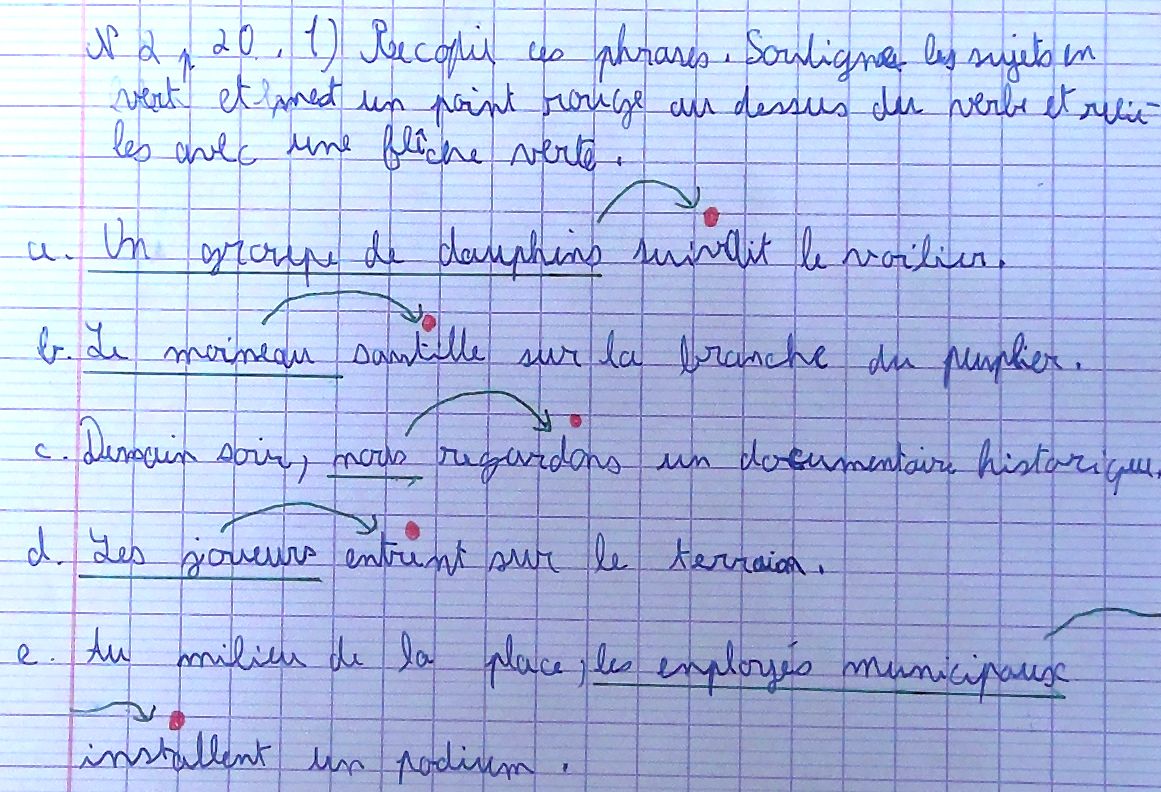 N 2 p 20. 1) Recopie ces phrases. Souligne les sujets en
vert et met un point rouge au dessus du verbe et relie-
les avec une flèche verte.
a. Un groupe de dauphins suivait le voilier.
b. Le moineau sautille sur la branche du peuplier.
c. Demain soir, nous regardons un documentaire historique.
d. Les joueurs entrent sur le terrain.
e. Au milieu de la place, les employés municipaux
installent un podium.